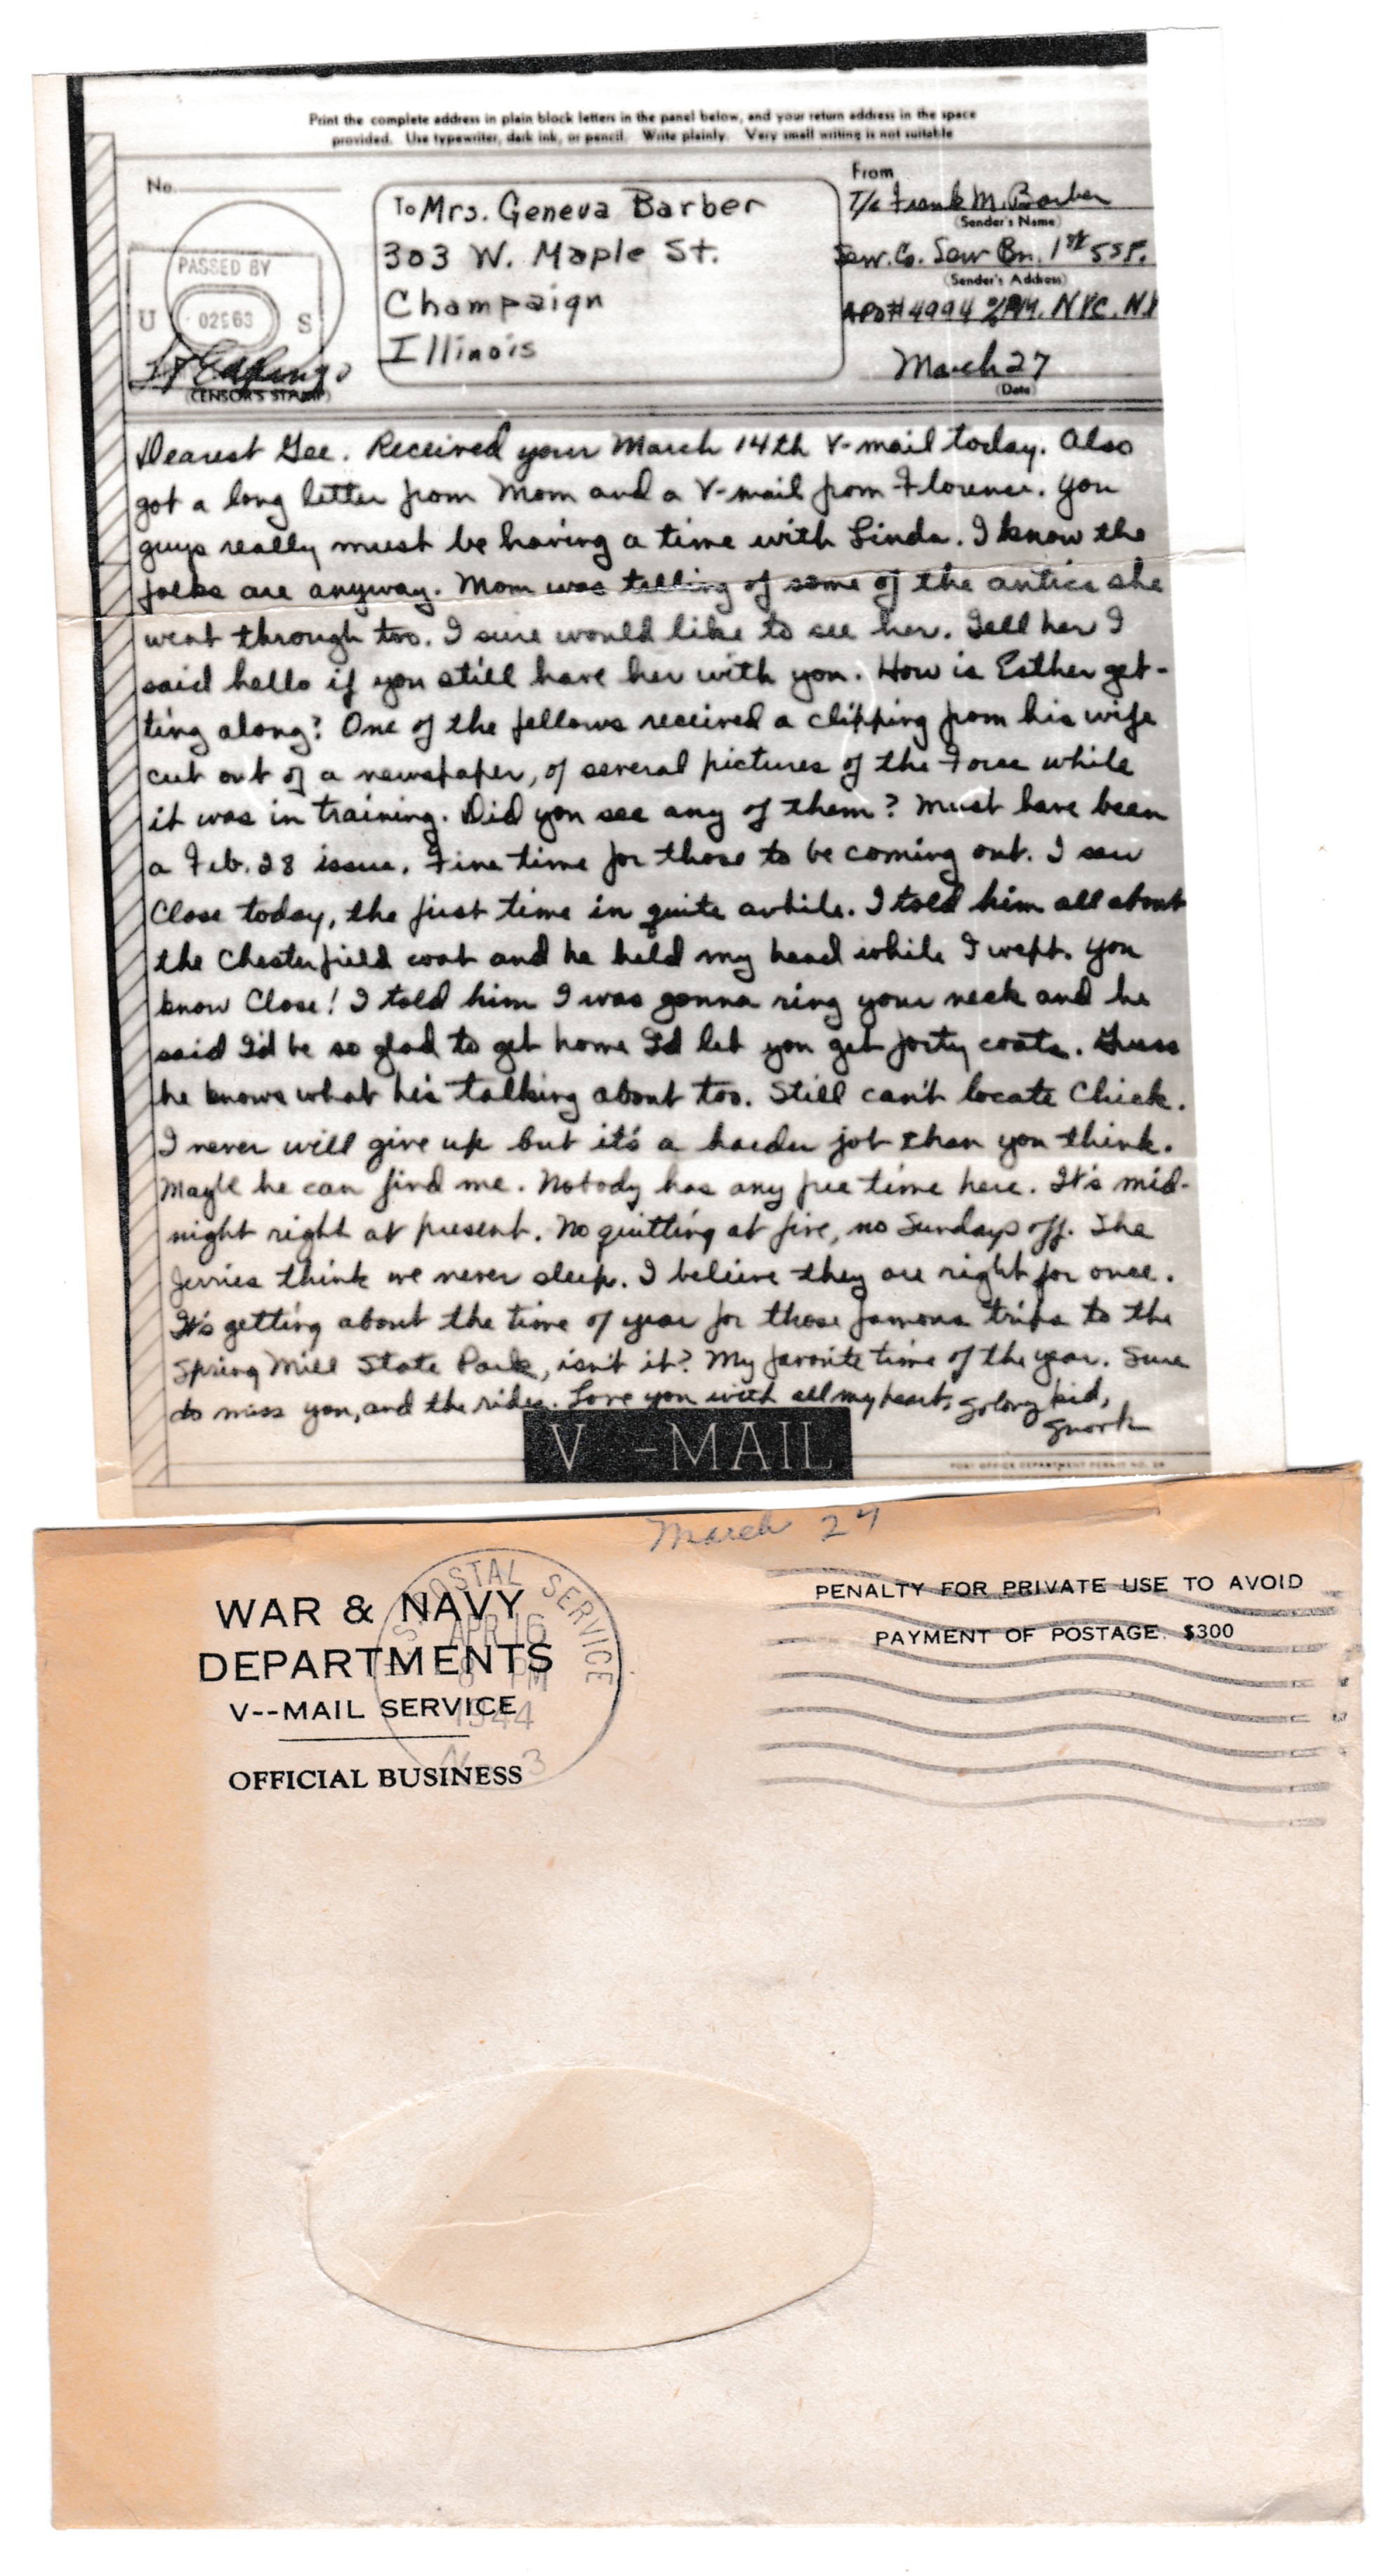 Print the complete address in plain block letters in the panel below, and your return address in the space
provided. Use typewriter, dark ink, or pencil. Write plainly. Very small writing is not suitable
No.
PASSED BY
U 02563 S
(CENSOR'S STAMP)
To Mrs. Geneva Barber
303 W. Maple St.
Champaign
Illinois
From
Frank M. Barber
(Sender's Name)
Serv. Co. Serv Bn. 1st SSF.
(Sender's Address)
APO# 4994 NYC. NY
March 27
(Date)
Dearest Gee. Received your March 14th V-mail today. Also
got a long letter from Mom and a V-mail from Florence. You
guys really must be having a time with Linda. I know the
folks are anyway. Mom was telling of some of the antics she
went through too. I sure would like to see her. Tell her I
said hello if you still have her with you. How is Esther get-
ting along? One of the fellows received a clipping from his wife
cut out of a newspaper, of several pictures of the Force while
it was in training. Did you see any of them? Must have been
a Feb. 28 issue. Fine time for those to be coming out. I saw
Close today, the first time in quite awhile. I told him all about
the Chesterfield coat and he held my head while I wept. You
know Close! I told him I was gonna ring your neck and he
said I'd be so glad to get home I'd let you get forty coats. Guess
he knows what he's talking about too. Still can't locate Chick.
I never will give up but it's a harder job than you think.
Maybe he can find me. Nobody has any free time here. It's mid-
night right at present. No quitting at five, no Sundays off. The
Jerries think we never sleep. I believe they are right for once.
It's getting about the time of year for those famous trips to the
Spring Mill State Park, isn't it? My favorite time of the year. Sure
do miss you, and the rides. Love you with all my heart, kid,
Snork
V-MAIL
POST OFFICE DEPARTMENT PERMIT NO.
March 27
WAR & NAVY
DEPARTMENTS
V--MAIL SERVICE
OFFICIAL BUSINESS
POSTAL SERVICE
APR 16
PM
1944
No 3
PENALTY FOR PRIVATE USE TO AVOID
PAYMENT OF POSTAGE. $300